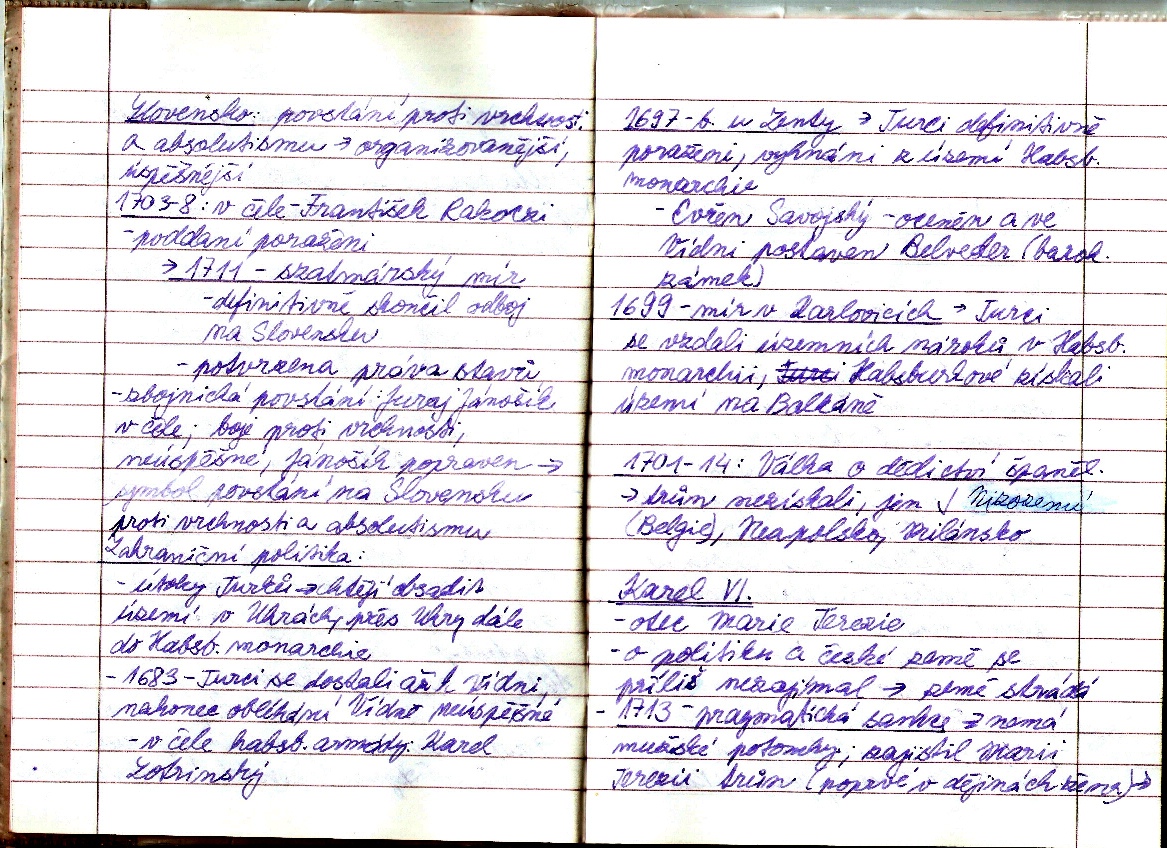 Slovensko: povstání proti vrchnosti
a absolutismu → organizovanější,
úspěšnější
1703-8: v čele - František Rakoczi
- poddaní poraženi
→ 1711 - szatmárský mír
- definitivně skončil odboj
na Slovensku
- potvrzena práva stavů
- zbojnická povstání: Juraj Jánošík
v čele; boje proti vrchnosti,
neúspěšné, Jánošík popraven →
symbol povstání na Slovensku
proti vrchnosti a absolutismu
Zahraniční politika:
- útoky Turků → chtějí obsadit
území v Uhrách, přes Uhry dále
do Habsb. monarchie
- 1683 - Turci se dostali až k Vídni,
nakonec obléhání Vídně neúspěšné
- v čele habsb. armády: Karel
Lotrinský
1697 - b. u Zenty → Turci definitivně
poraženi, vyhnáni z území Habsb.
monarchie
- Evžen Savojský - oceněn a ve
Vídni postaven Belveder (barok.
zámek)
1699 - mír v Karlovicích → Turci
se vzdali územních nároků v Habsb.
monarchii, Turci Habsburkové získali
území na Balkáně
1701-14: Válka o dědictví španěl.
→ trůn nezískali, jen J Nizozemí
(Belgie), Neapolsko, Milánsko
Karel VI.
- otec Marie Terezie
- o politiku a české země se
příliš nezajímal → země strádá
- 1713 - pragmatická sankce → nemá
mužské potomky; zajistil Marii
Terezii trůn (poprvé v dějinách žena) →